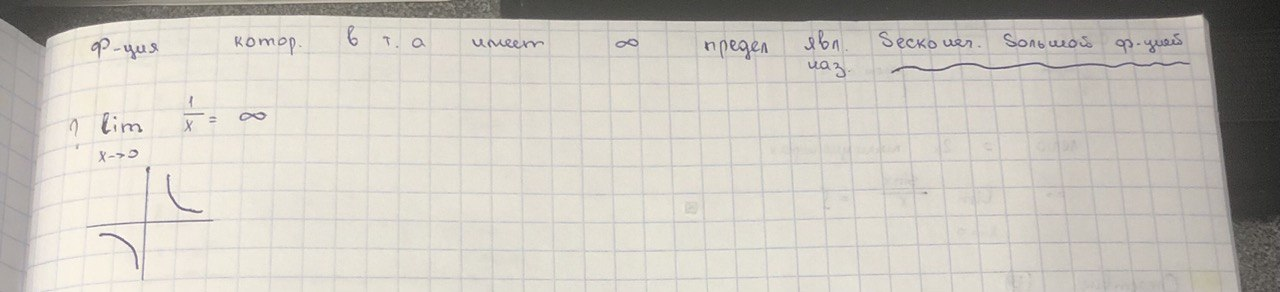 ф-ция котор. в т. а имеет ∞ предел явл. бесконеч. большой ф-цией
наз.
? lim 1/x = ∞
x→0